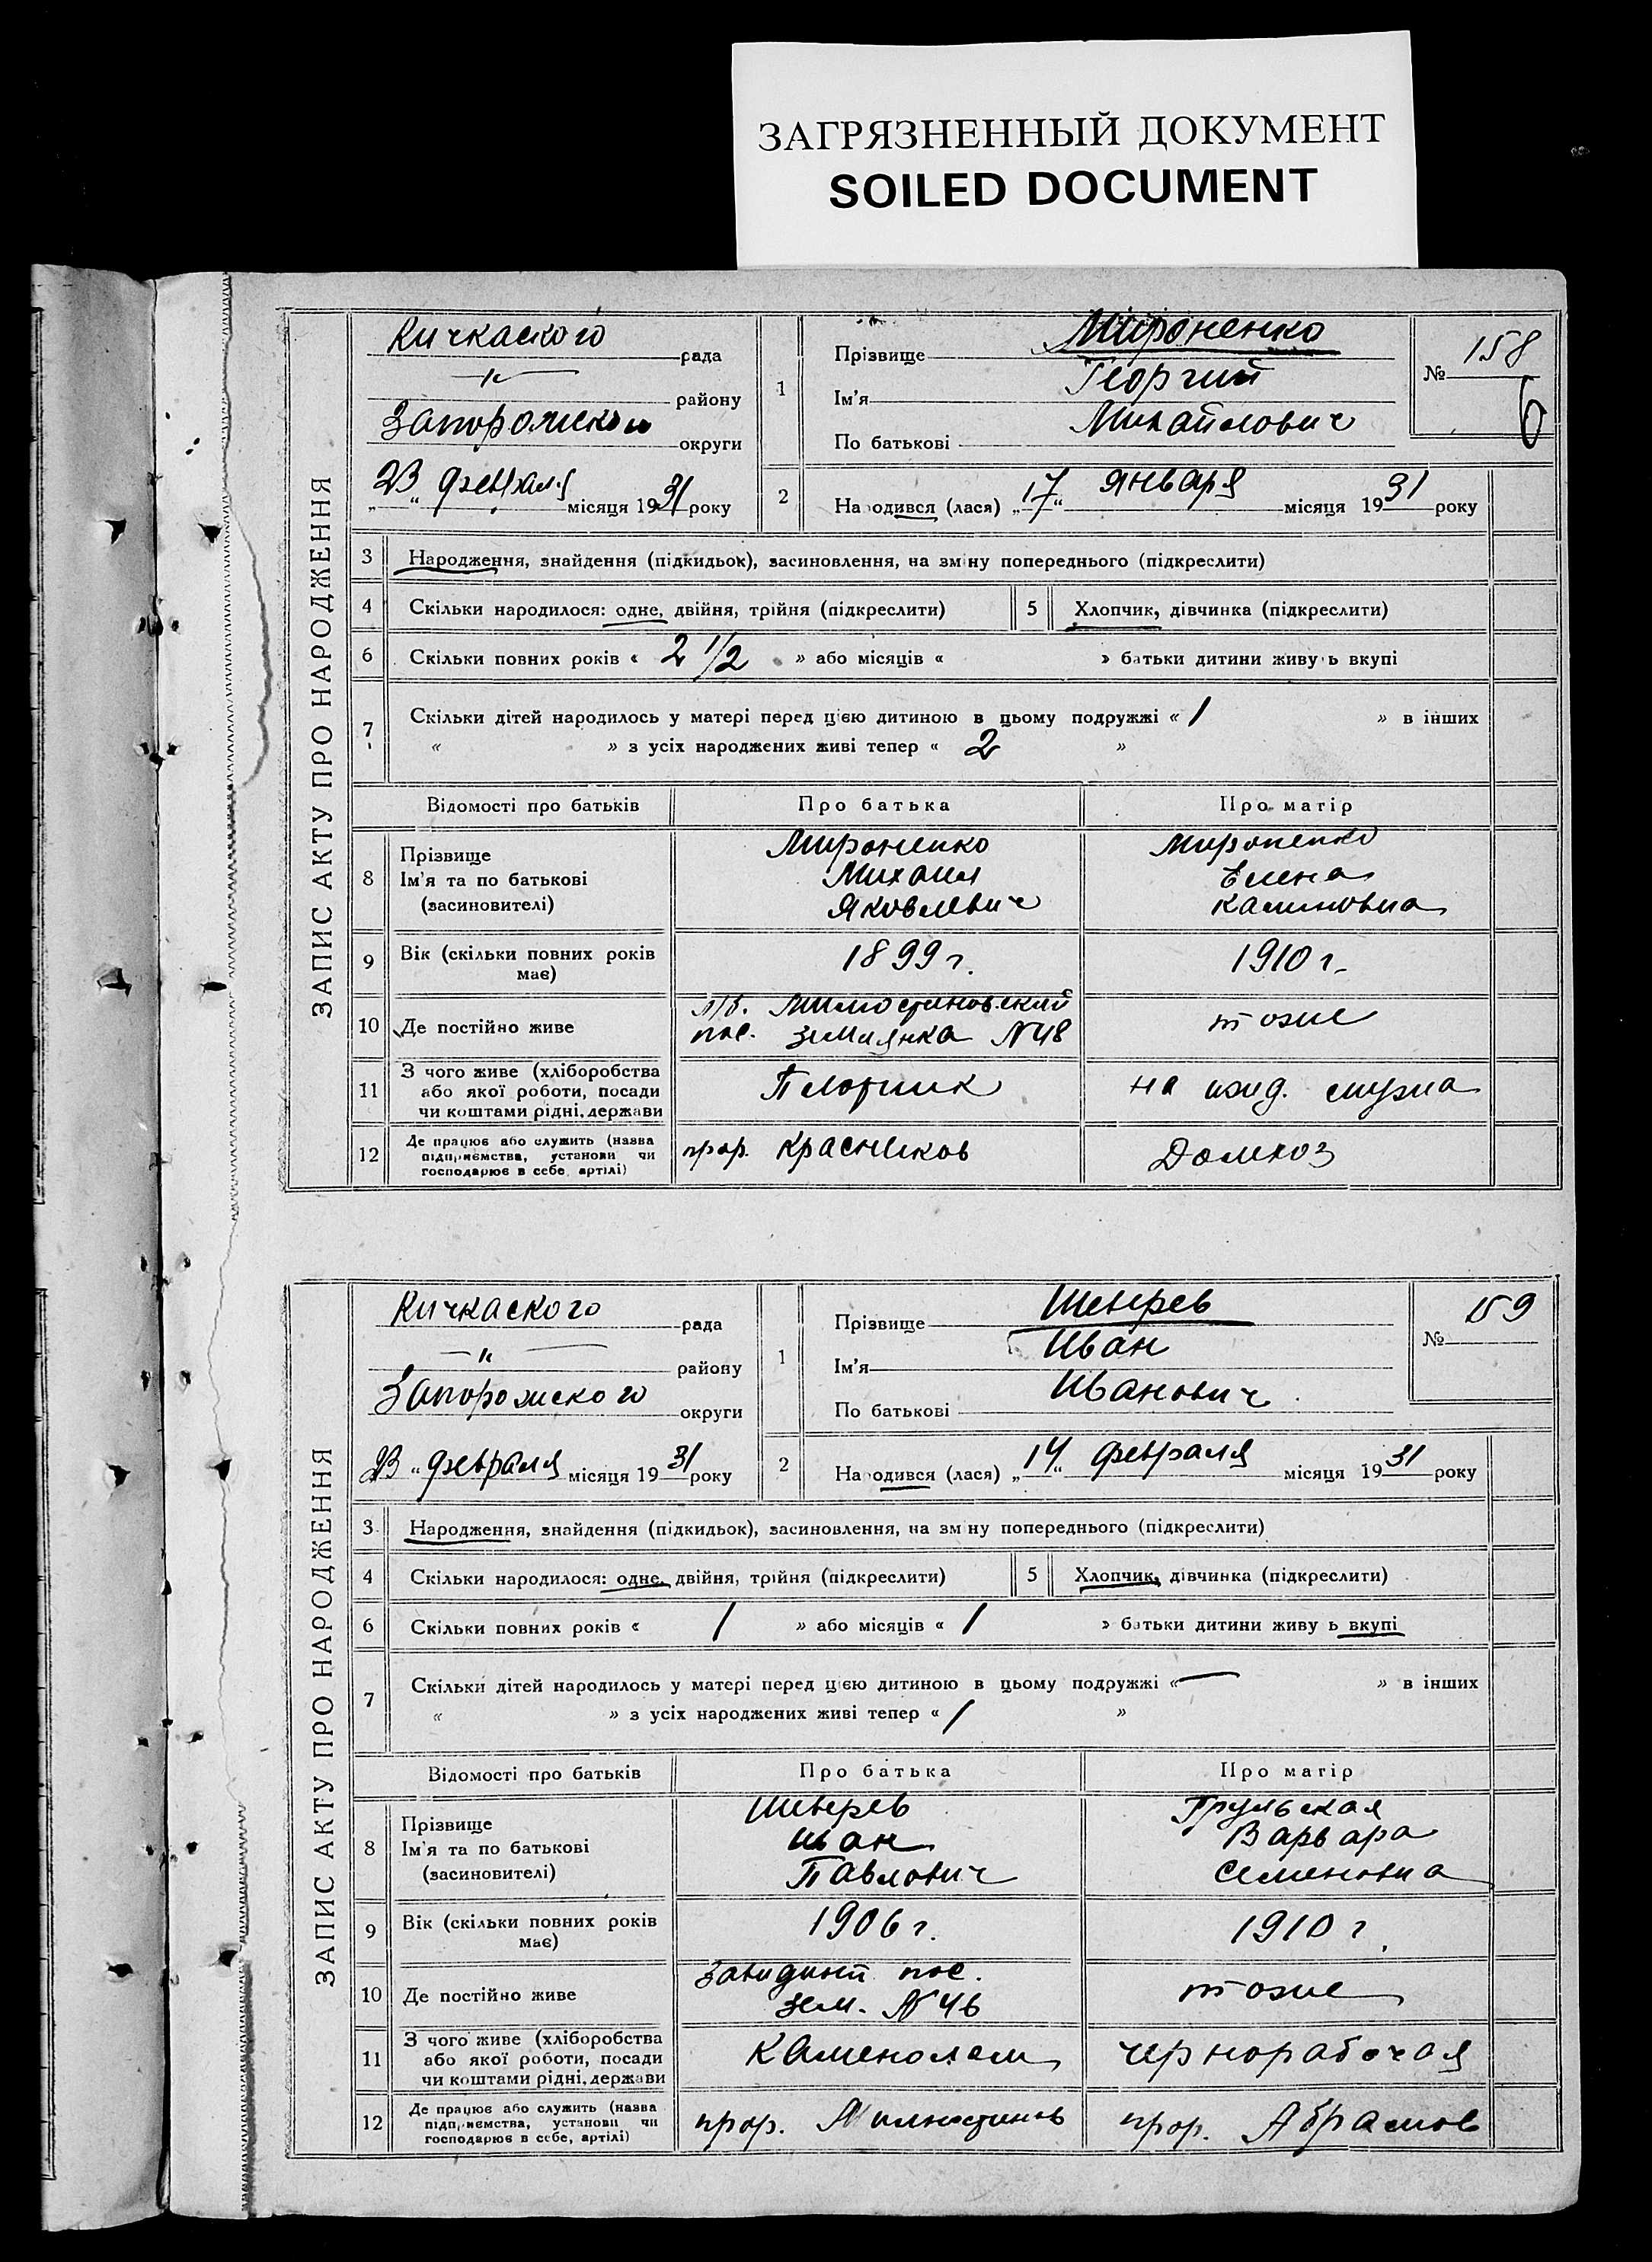 ЗАГРЯЗНЕННЫЙ ДОКУМЕНТ
SOILED DOCUMENT
ЗАПИС АКТУ ПРО НАРОДЖЕННЯ
Кичкаского рада
—„— району
Запорожского округи
„23“ февраля місяця 1931 року
1 Прізвище Мироненко
Ім'я Георгий
По батькові Михайлович
№ 158
6
2 Народився (лася) „17“ января місяця 1931 року
3 Народження, знайдення (підкидьок), засиновлення, на зміну попереднього (підкреслити)
4 Скільки народилося: одне, двійня, трійня (підкреслити) 5 Хлопчик, дівчинка (підкреслити)
6 Скільки повних років « 2 1/2 » або місяців « » батьки дитини живуть вкупі
7 Скільки дітей народилось у матері перед цією дитиною в цьому подружжі « 1 » в інших
« » з усіх народжених живі тепер « 2 »
Відомості про батьків Про батька Про матір
8 Прізвище Ім'я та по батькові (засиновителі)
Мироненко Михаил Яковлевич
Мироненко Елена Калиновна
9 Вік (скільки повних років має) 1899 г. 1910 г.
10 Де постійно живе
пос. землянка №48
тоже
11 З чого живе (хліборобства або якої роботи, посади чи коштами рідні, держави
Плотник
на ижд. мужа
12 Де працює або служить (назва підприємства, установи чи господарює в себе, артілі)
прор. Красников
Домхоз
ЗАПИС АКТУ ПРО НАРОДЖЕННЯ
Кичкаского рада
—„— району
Запорожского округи
23 „ февраля місяця 1931 року
1 Прізвище Шевырев
Ім'я Иван
По батькові Иванович
№ 159
2 Народився (лася) „14“ февраля місяця 1931 року
3 Народження, знайдення (підкидьок), засиновлення, на зміну попереднього (підкреслити)
4 Скільки народилося: одне, двійня, трійня (підкреслити) 5 Хлопчик, дівчинка (підкреслити)
6 Скільки повних років « 1 » або місяців « 1 » батьки дитини живуть вкупі
7 Скільки дітей народилось у матері перед цією дитиною в цьому подружжі « — » в інших
« » з усіх народжених живі тепер « 1 »
Відомості про батьків Про батька Про матір
8 Прізвище Ім'я та по батькові (засиновителі)
Шевырев Иван Павлович
Варвара Семеновна
9 Вік (скільки повних років має) 1906 г. 1910 г.
10 Де постійно живе
пос.
зем. №46
тоже
11 З чого живе (хліборобства або якої роботи, посади чи коштами рідні, держави
Каменолом
чернорабочая
12 Де працює або служить (назва підприємства, установи чи господарює в себе, артілі)
прор.
прор. Абрамов